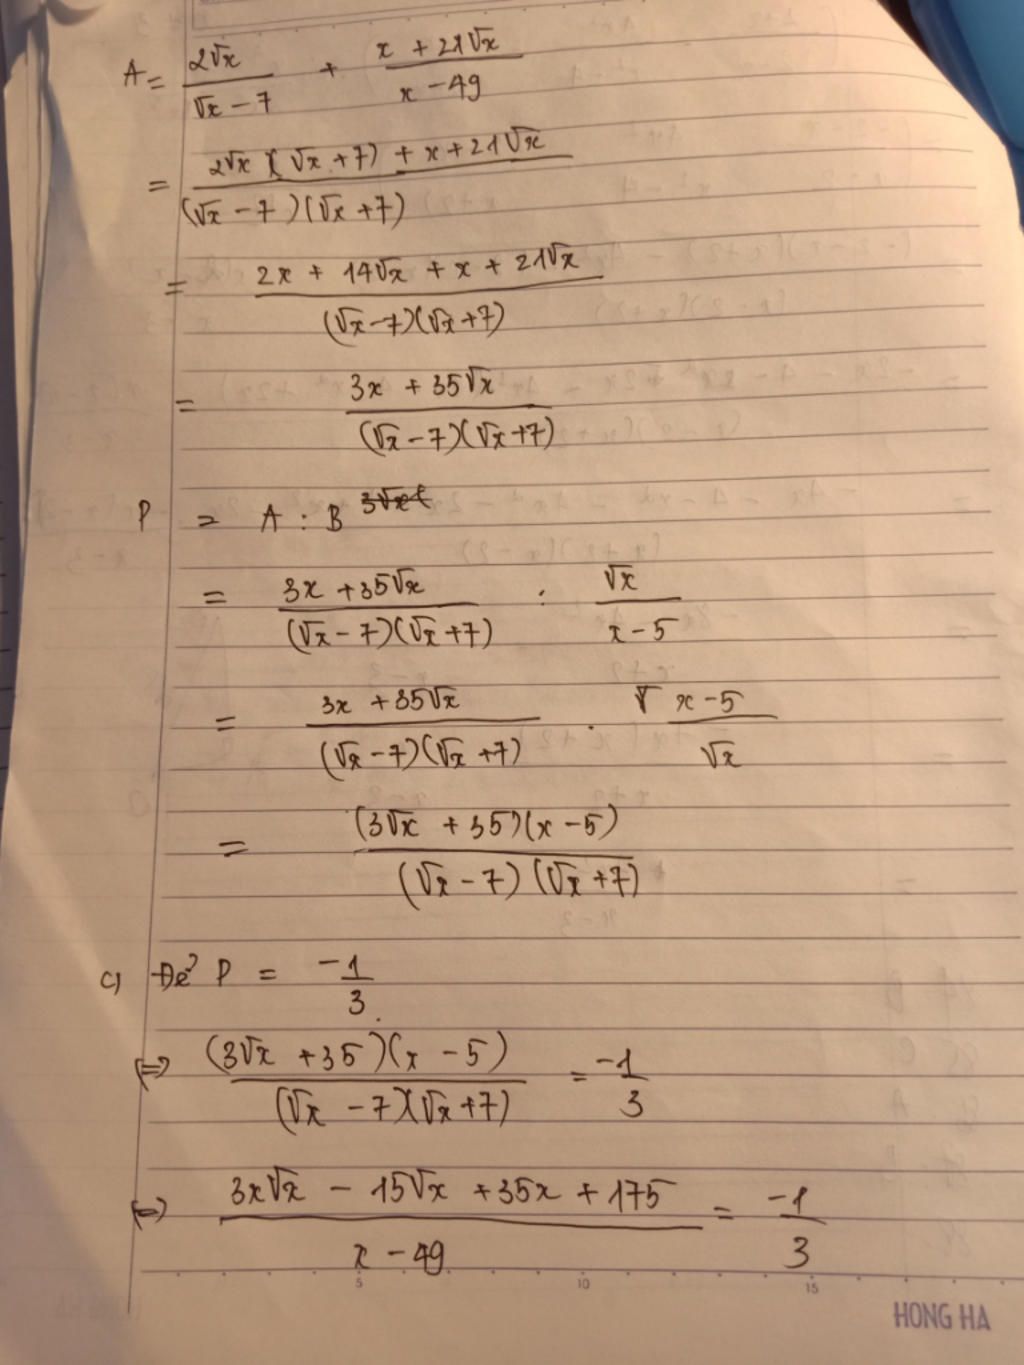 A = 2√x / √x − 7 + x + 21√x / x − 49
= 2√x (√x + 7) + x + 21√x / (√x − 7)(√x + 7)
= 2x + 14√x + x + 21√x / (√x − 7)(√x + 7)
= 3x + 35√x / (√x − 7)(√x + 7)
P = A : B
= 3x + 35√x / (√x − 7)(√x + 7) : √x / x − 5
= 3x + 35√x / (√x − 7)(√x + 7) . x − 5 / √x
= (3√x + 35)(x − 5) / (√x − 7)(√x + 7)
c) Để P = −1 / 3
⇔ (3√x + 35)(x − 5) / (√x − 7)(√x + 7) = −1 / 3
⇔ 3x√x − 15√x + 35x + 175 / x − 49 = −1 / 3
5 10 15
HONG HA